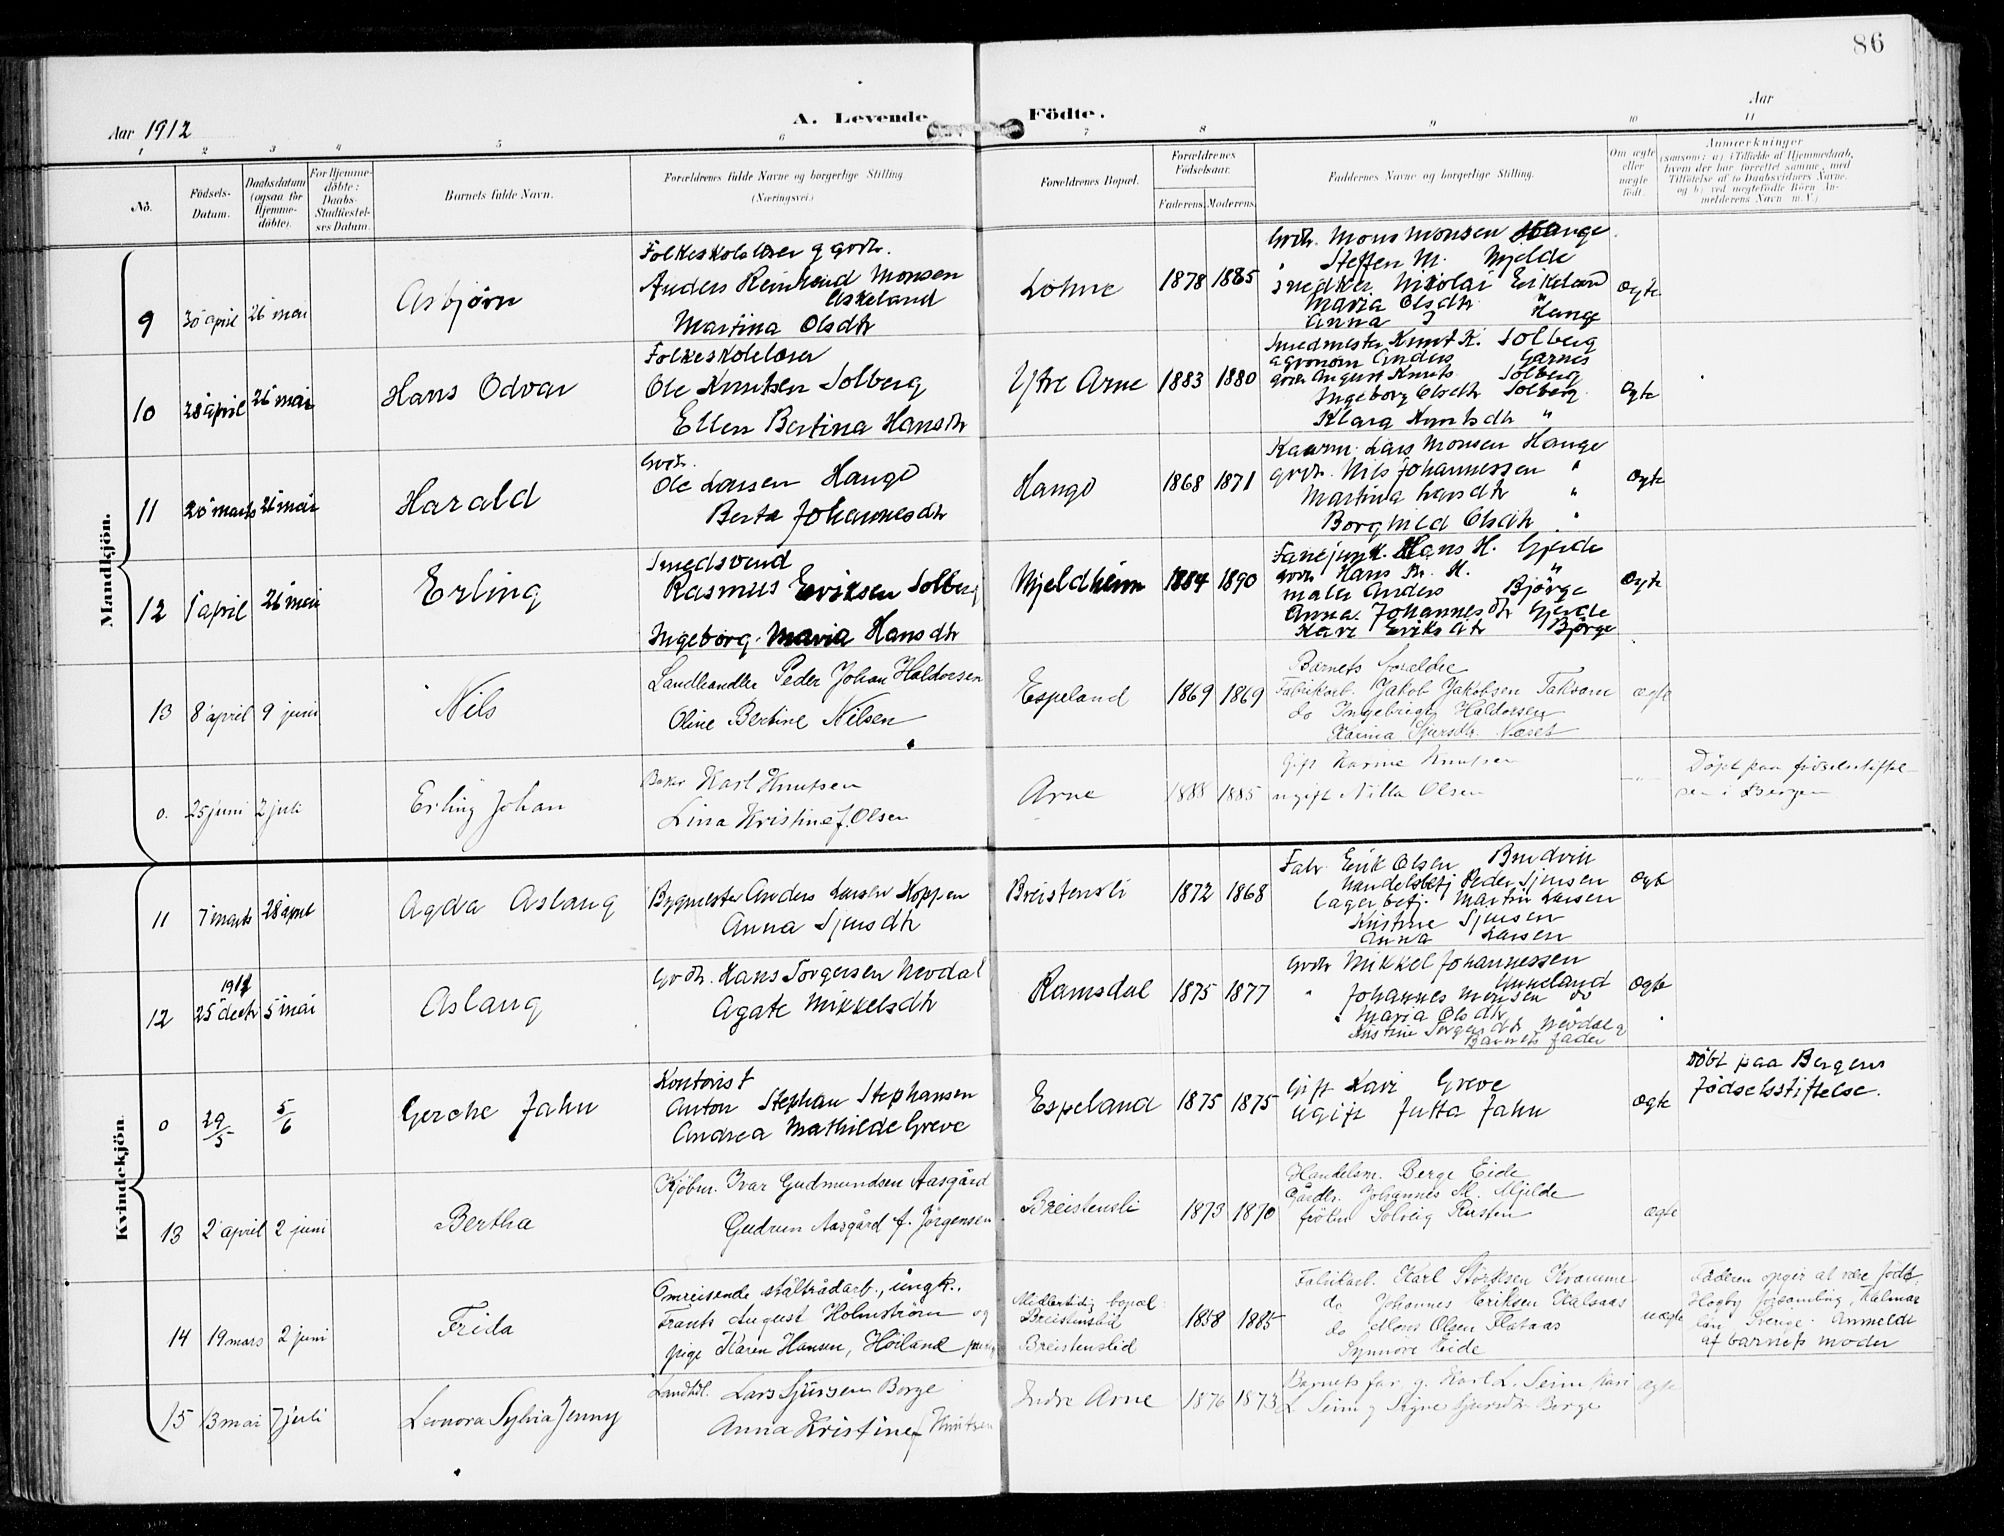 86
Aar 1912
A. Levende Födte.
Aar
1 2 3 4 5 6 7 8 9 10 11
No.
Födsels-Datum.
Daabsdatum (ogsaa for Hjemme-döbte).
For Hjemme-döbte: Daabs-Stadfæstel-ses Datum.
Barnets fulde Navn.
Forældrenes fulde Navne og borgerlige Stilling.
(Næringsvei.)
Forældrenes Bopæl.
Forældrenes Födselsaar.
Faderens. Moderens.
Faddernes Navne og borgerlige Stilling.
Om ægte eller uægte födt.
Anmærkninger
(saasom: a) i Tilfælde af Hjemmedaab,
hvem der har forrettet samme, med
Tilföielse af to Daabsvidners Navne,
og b) ved uægtefödte Börn An-
melderens Navn m. V.)
Mandkjön.
9 30 april 26 mai Asbjørn
Folkeskolelærer g
Anders Reinhard Monsen
Askeland
Martina Olsdtr
Lohne 1878 1885
Gvdr. Mons Monsen Hauge
" Steffen M. Mjelde
Smedsv. Nikolai Eikeland
Maria Olsdtr "
Anna J Hauge
ægte
10 28 april 26 mai Hans Odvar
Folkeskolelærer
Ole Knutsen Solberg
Ellen Bertina Hansdtr
Ytre Arne 1883 1880
Smedmester Knut K. Solberg
agronom Anders Garnes
gvdr August Knuts. Solberg
Ingeborg Olsdtr Solberg
Klara Knutsdtr "
ægte
11 20 marts 26 mai Harald
Gvdr.
Ole Larsen Hauge
Berta Johannesdtr
Hauge 1868 1871
Kaarm. Lars Monsen Hauge
gvdr. Nils Johannessen "
Martina Larsdtr "
Borghild Olsdtr "
ægte
12 1 april 26 mai Erling
Smedsvend
Rasmus Eriksen Solberg
Ingeborg Maria Hansdtr
Mjeldheim 1884 1890
Fanejunk. Hans H. Gjerde
gvdr Hans Br. H. "
maler Anders Bjørge
Anna Johannesdtr Gjerde
Kari Eriksdtr Bjørge
ægte
13 8 april 9 juni Nils
Landhandler Peder Johan Haldorsen
Oline Bertine Nilsen
Espeland 1869 1869
Barnets forældre
Fabrikarb. Jakob Jakobsen Takvam
do Ingebrigt Haldorsen
Karina Sjursdtr.
ægte
0. 25 juni 2 juli Erling Johan
Baker Karl Knutsen
Lina Kristine f. Olsen
Arne 1888 1885
Gift Karine Knutsen
ugift Nilla Olsen
— " —
Døpt paa fødselsstiftel-
sen i Bergen
Kvindekjön.
11 7 marts 28 april Agda Aslaug
Bygmester Anders Larsen Koppen
Anna Sjursdtr
Breistensli 1872 1868
Fabr. Erik Olsen Bruvik
handelsbetj Peder Sjursen
lagerbetj. Martin Larsen
Kristine Sjursen
Anna Larsen
ægte
12 1911 25 decbr 5 mai Aslaug
Gvdr. Hans Torgersen Nevdal
Agate Mikkelsdtr
Ramsdal 1875 1877
Gvdr Mikkel Johannessen
Unneland
" Johannes Monsen do
" Maria Olsdtr
Kristine Torgersdtr Nevdal g
Barnets fader
ægte
0 29/5 5/6 Gerche Jahn
Kontorist
Anton Stephan Stephansen
Andrea Mathilde Greve
Espeland 1875 1875
Gift Kari Greve
ugift Jutta Jahn
ægte
Döbt paa Bergens
Fødselsstiftelse.
13 2 april 2 juni Bertha
Kjøbm. Ivar Gudmundsen Aasgård
Gudrun Aasgård f. Jørgensen
Breistensli 1873 1870
Handelsm. Berge Eide
Gårdbr. Johannes M. Mjelde
frøken Solveig Rusten
ægte
14 19 mars 2 juni Frida
Omreisende ståltrådarb., ungk.,
Frants August Holmström og
pige Karen Hansen, Høiland
Midlertidig bopæl:
Breistenslid
Breistenslid
1858 1885
Fabrikarb. Karl Størksen Kvamme
do Johannes Eriksen Kalsaas
do Mons Olsen Flataas
Synnøve Eide
uægte
Faderen opgir at være født
Høgby forsamling, Kalmar
län Sverge. Anmeldt
af barnets moder
15 13 mai 7 juli Leonora Sylvia Jenny
Landhdl. Lars Sjursen Borge
Anna Kristine f Knutsen
Indre Arne 1876 1873
Barnets far g. Karl L. Seim Kari
L Seim g Signe Sjursdtr Borge
ægte